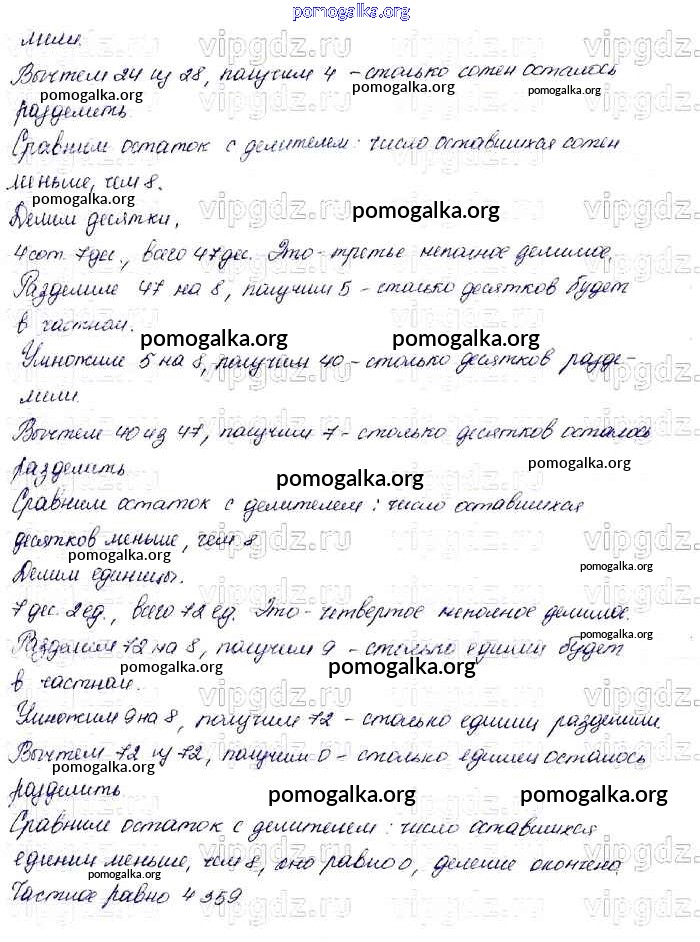 pomogalka.org
лили.
Вычтем 24 из 28, получим 4 – столько сотен осталось
pomogalka.org pomogalka.org pomogalka.org
разделить.
Сравним остаток с делителем: число оставшихся сотен
меньше, чем 8.
pomogalka.org
Делим десятки.
4 сот. 7 дес., всего 47 дес. Это – третье неполное делимое.
Разделим 47 на 8, получим 5 – столько десятков будет
в частном.
pomogalka.org pomogalka.org
Умножим 5 на 8, получим 40 – столько десятков разде-
лили.
Вычтем 40 из 47, получим 7 – столько десятков осталось
pomogalka.org
разделить.
pomogalka.org
Сравним остаток с делителем: число оставшихся
десятков меньше, чем 8
pomogalka.org pomogalka.org
Делим единицы.
7 дес. 2 ед., всего 72 ед. Это – четвертое неполное делимое.
pomogalka.org
Разделим 72 на 8, получим 9 – столько единиц будет
pomogalka.org pomogalka.org
в частном.
Умножим 9 на 8, получим 72 – столько единиц разделили.
Вычтем 72 из 72, получим 0 – столько единиц осталось
pomogalka.org
разделить.
pomogalka.org pomogalka.org
Сравним остаток с делителем: число оставшихся
единиц меньше, чем 8, оно равно 0, деление окончено.
pomogalka.org
Частное равно 4 359.
vipgdz.ru